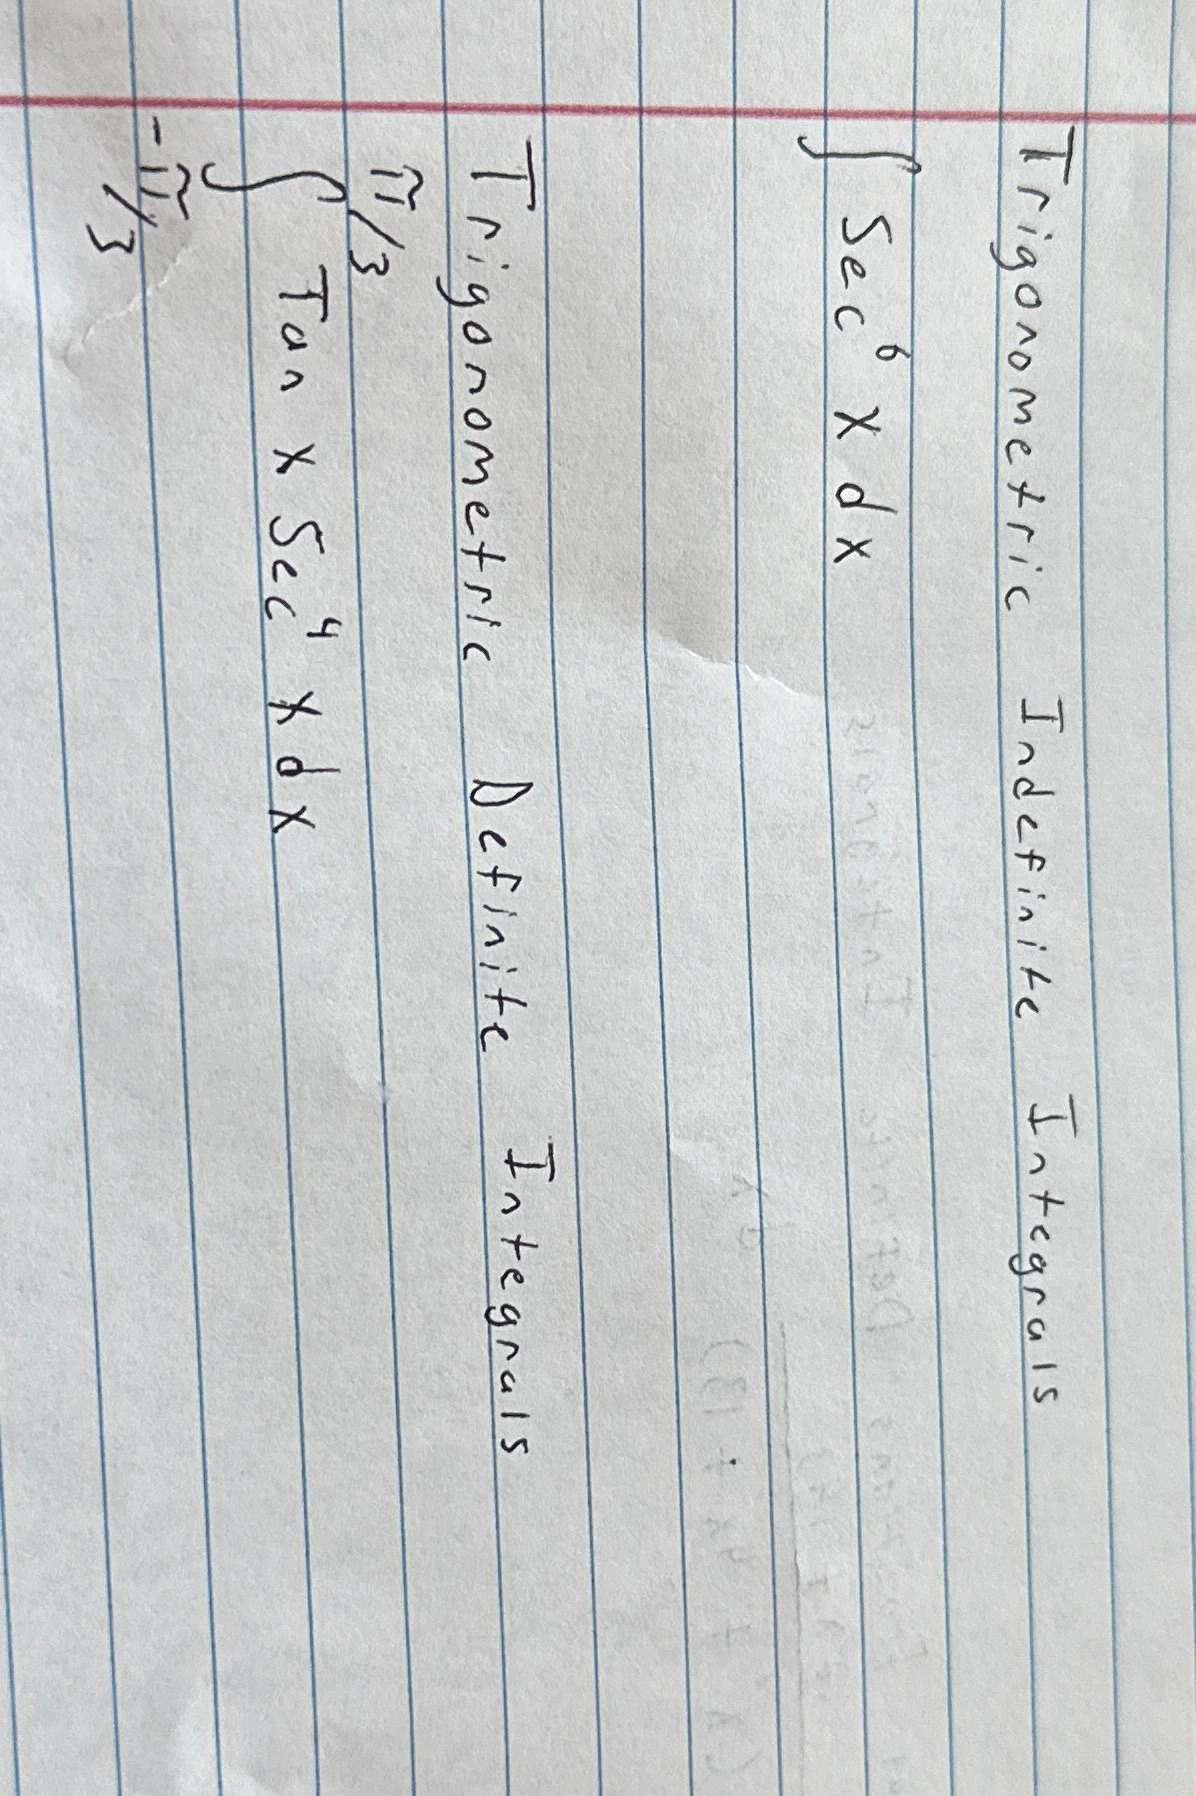 Trigonometric Indefinite Integrals
∫ Sec⁶ x dx
Trigonometric Definite Integrals
π/3
∫ Tan x Sec⁴ x dx
-π/3